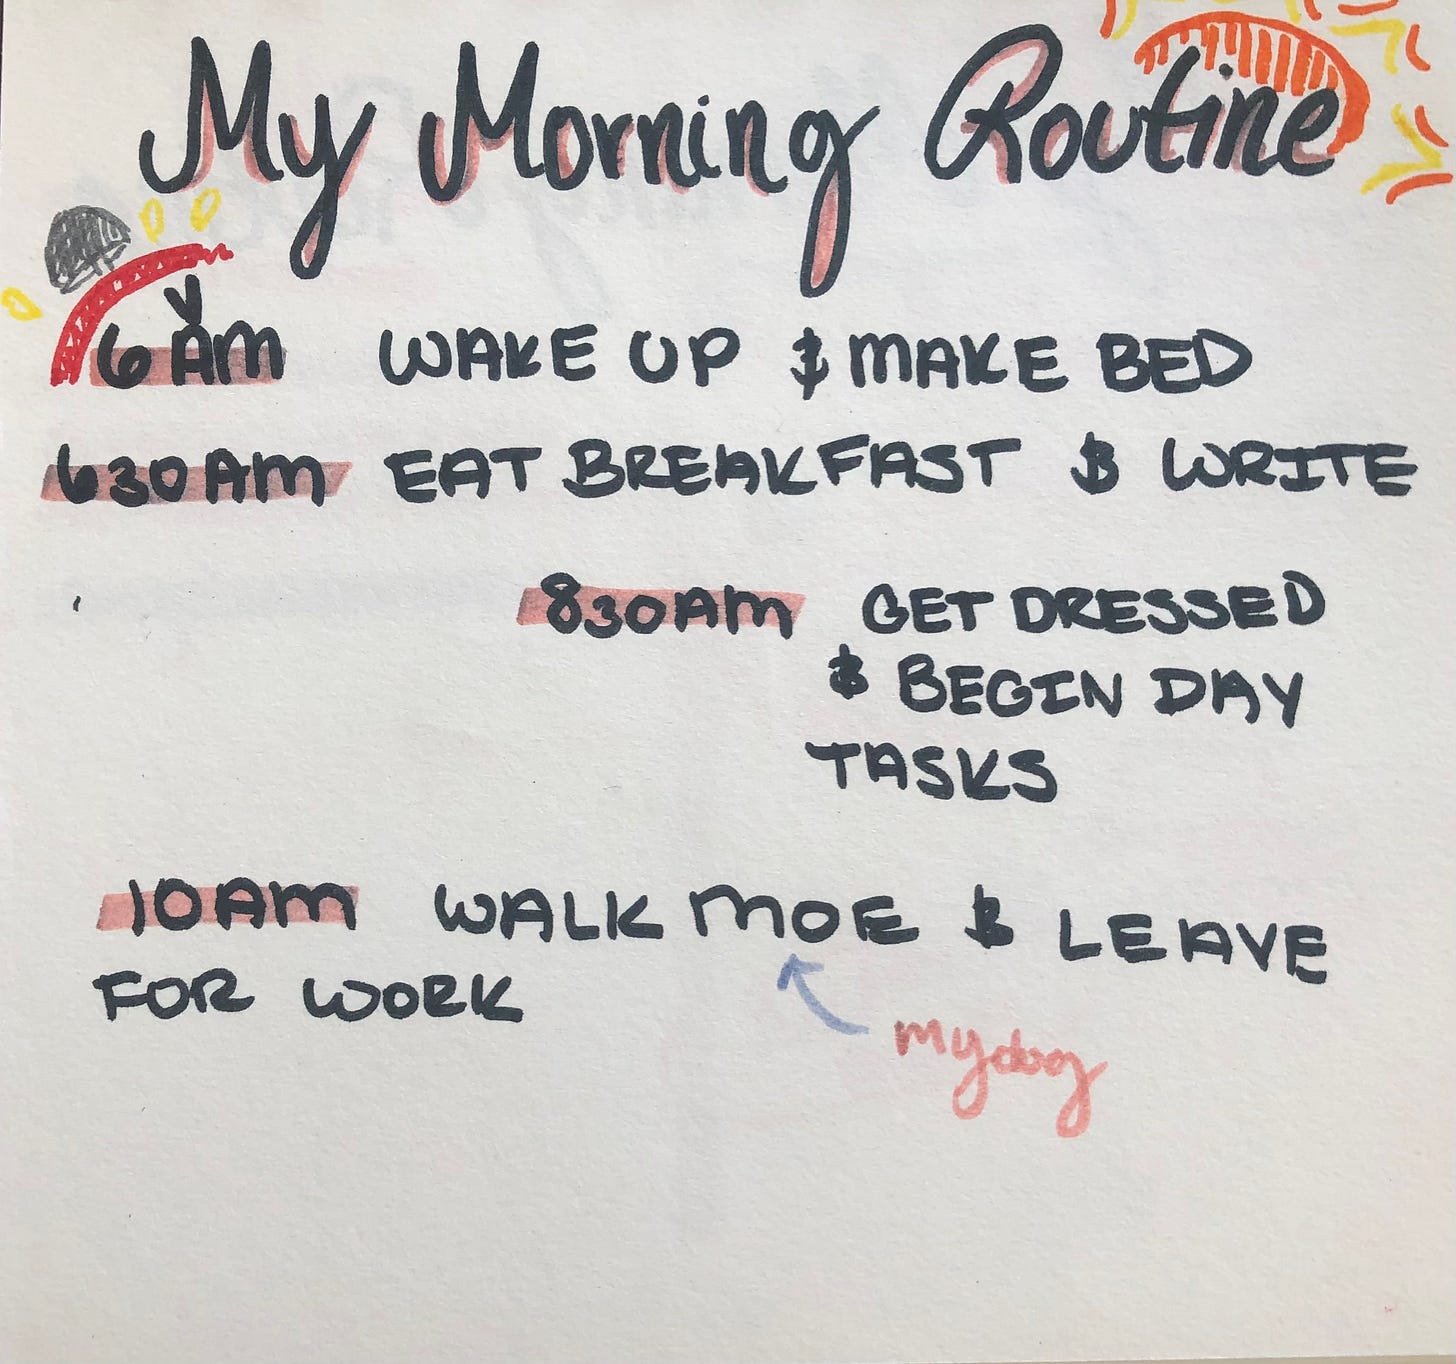 My Morning Routine
6 AM WAKE UP & MAKE BED
630 AM EAT BREAKFAST & WRITE
830 AM GET DRESSED
& BEGIN DAY
TASKS
10 AM WALK MOE & LEAVE
FOR WORK
my dog